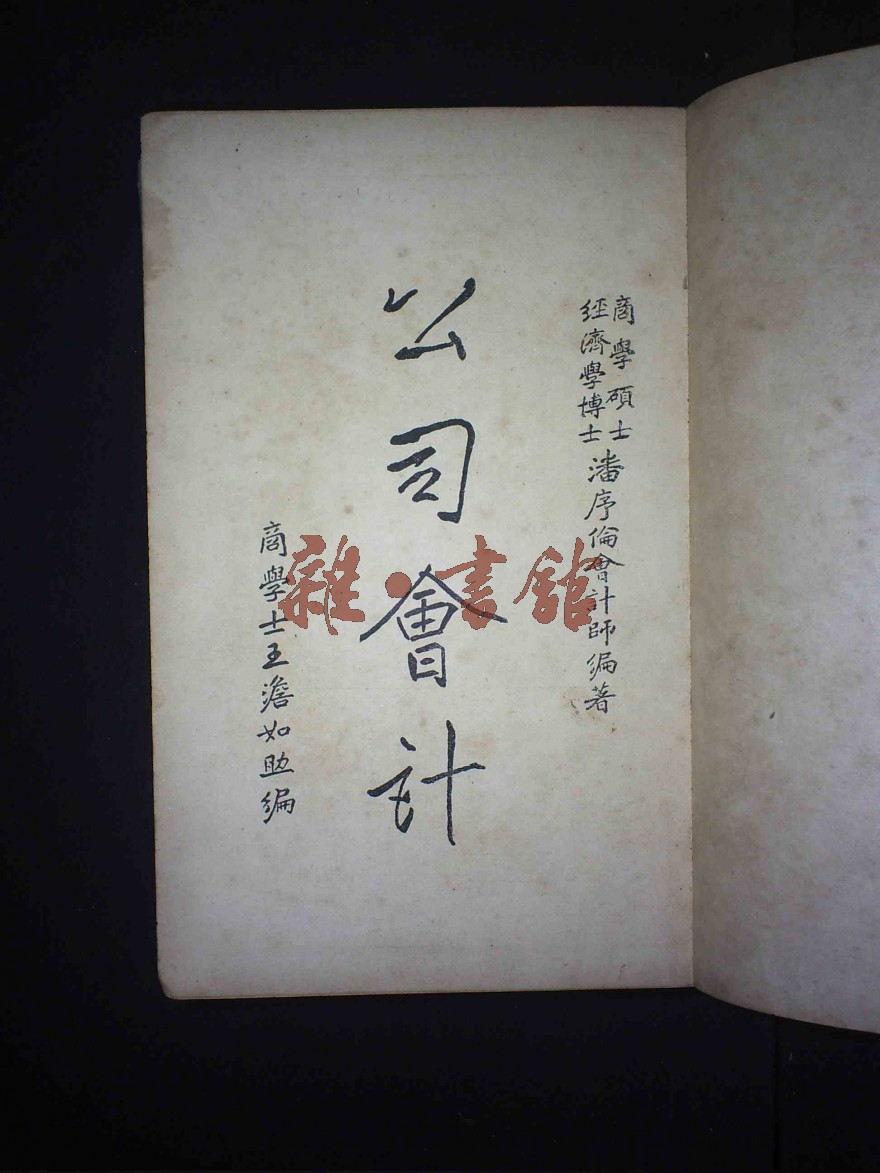 商學碩士
經濟學博士
潘序倫會計師編著
公司會計
商學士王澹如助編
雜·書館